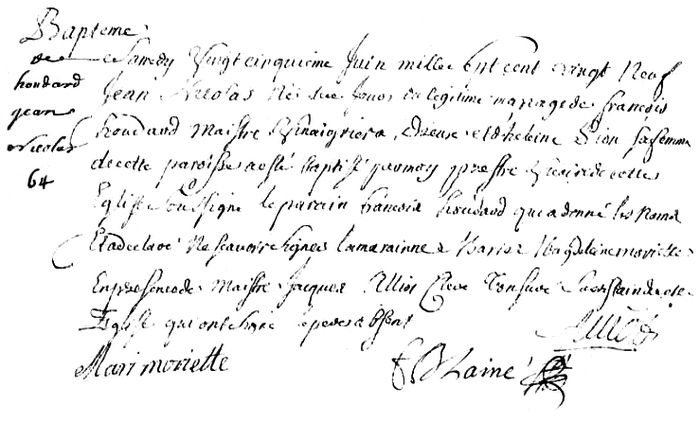 Bapteme
de
houdard
jean
Nicolas
64
Ce Samedy Vingt cinquieme Juin mille sept cent vingt Neuf
Jean Nicolas Né de ce Jour en legitime mariage de françois
houdard Maistre Vinaigrier a Dreux et d'heleine Dion sa femme
de cette paroisse a esté Baptisé par moy prestre Vicaire de cette
Eglise Soussigne le parain francois houdard qui a donné les Noms
Et a declaré Ne scavoir signer la marainne Marie Magdeleine moriette
En presence de Maistre Jacques Allin Clerc Tonsuré Sacristain de cette
Eglise qui ont signe le pere absent
Mari moriette
f B Lainé